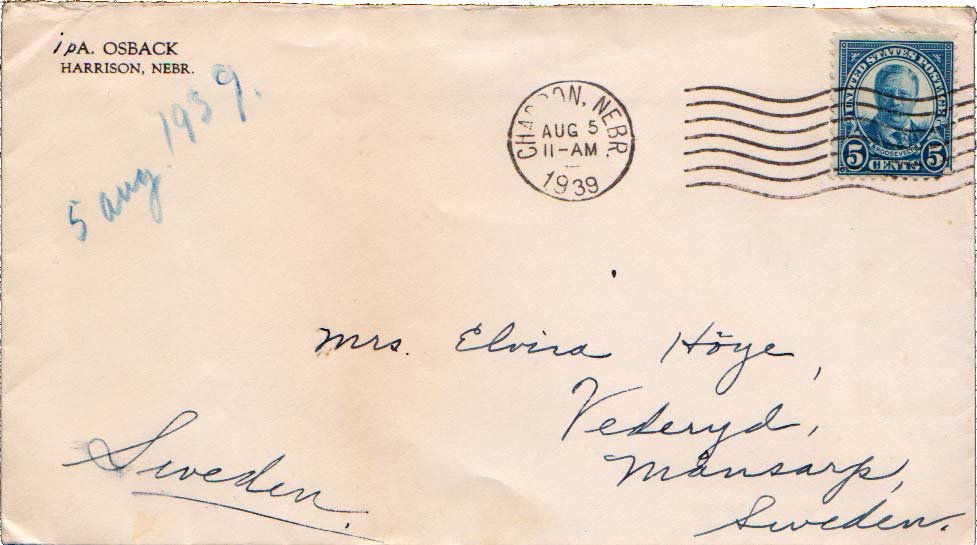 ipA. OSBACK
HARRISON, NEBR.
5 aug. 1939.
CHADRON, NEBR.
AUG 5
11-AM
1939
UNITED STATES POSTAGE
ROOSEVELT
5 CENTS 5
Mrs. Elvira Höye,
Vederyd,
Månsarp,
Sweden.
Sweden.